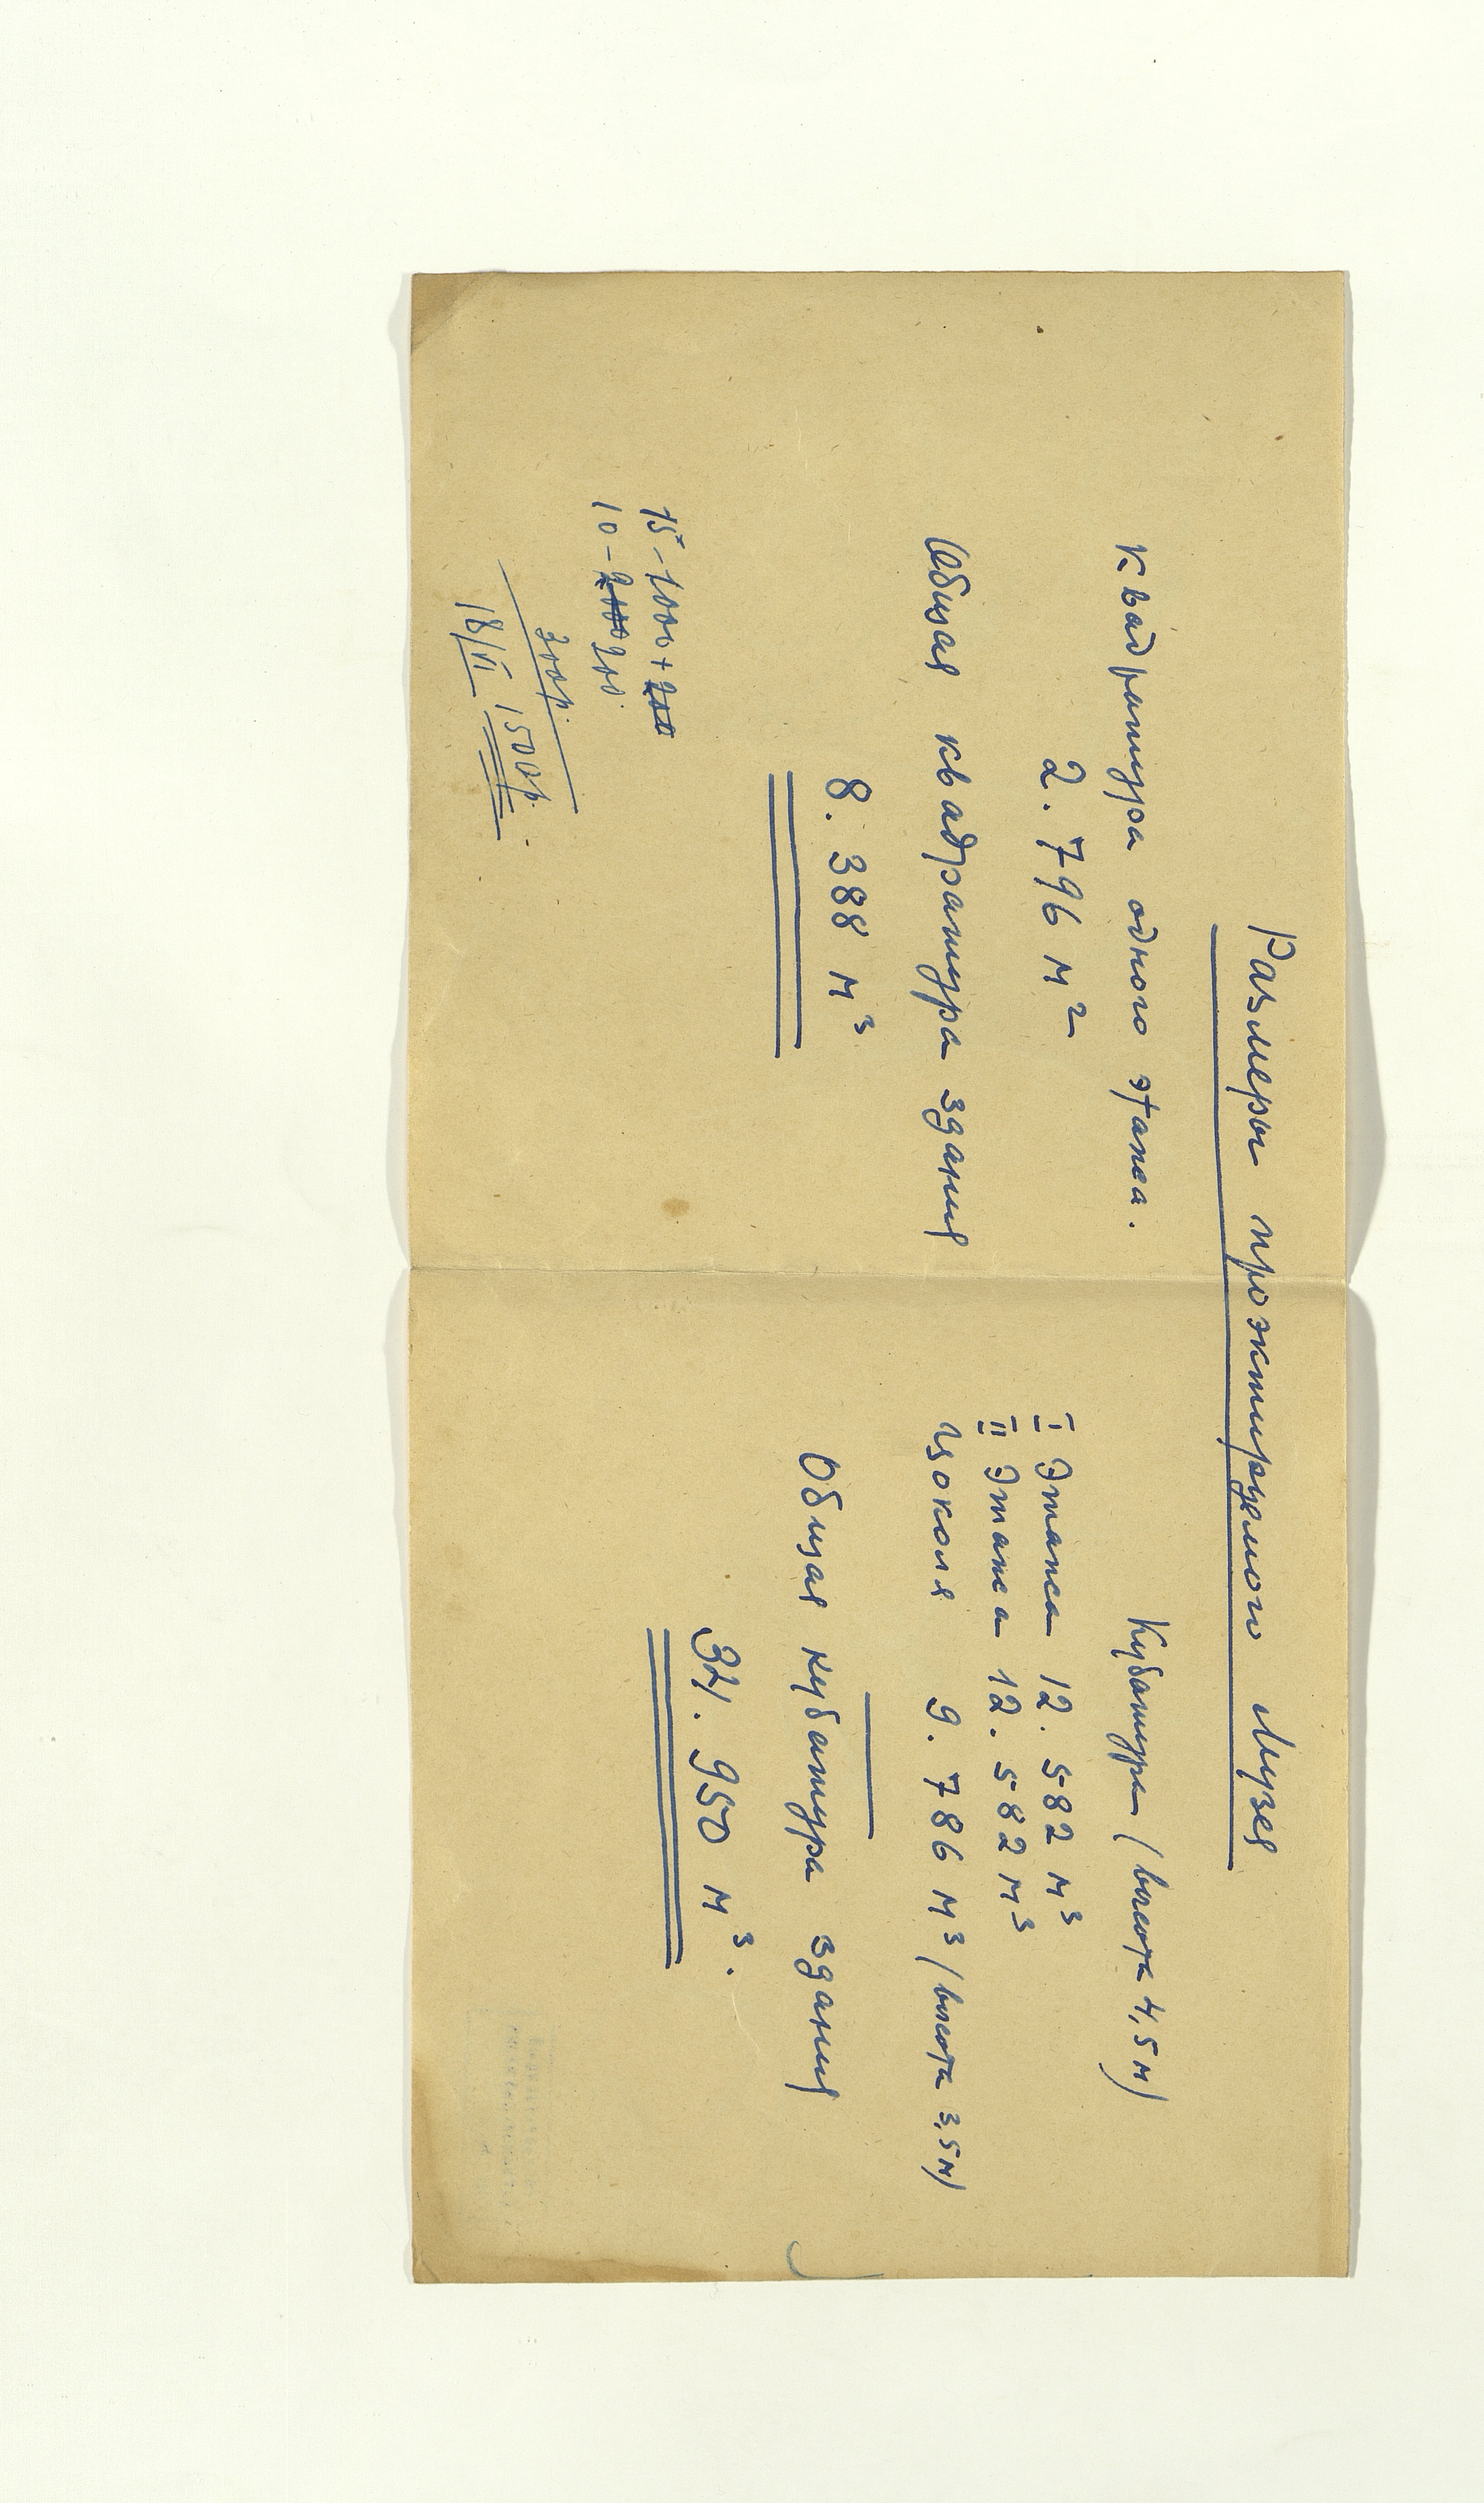 Размеры проэктируемого Музея
Квадратура одного этажа.
2.796 м²
Общая квадратура здания
8.388 м³
15-1000+200
10-2000 200.
300р.
18/VI 1500р.
Кубатура (высота 4,5 м)
I Этажа 12.582 м³
II Этажа 12.582 м³
Цоколя 9.786 м³ (высота 3,5 м)
Общая кубатура здания
34.950 м³.